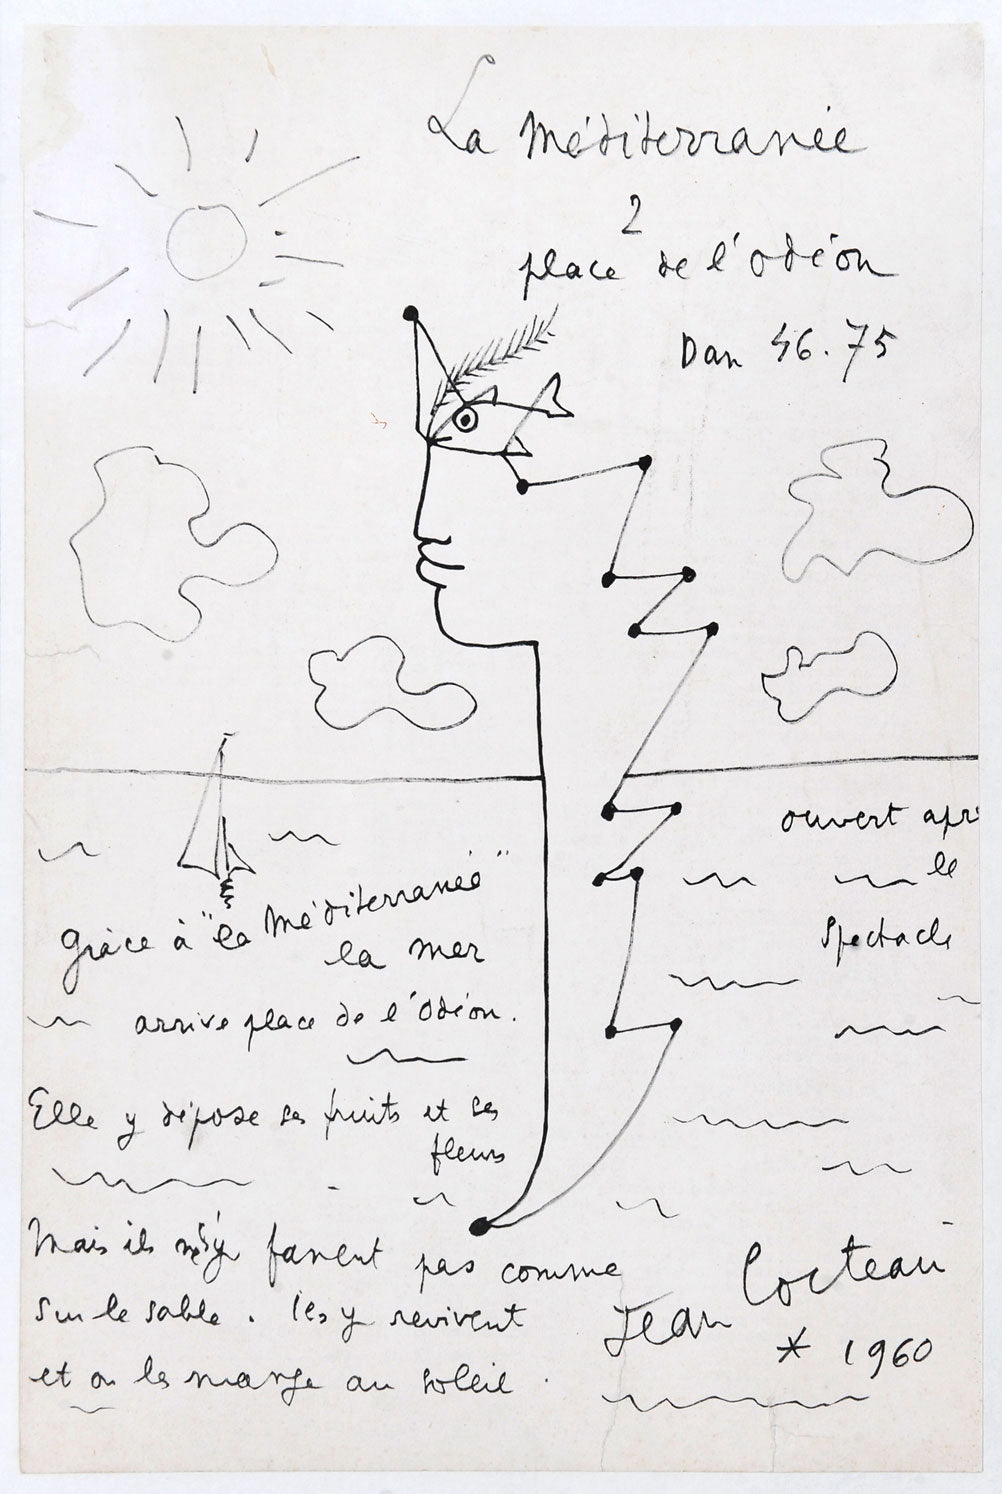 La Méditerranée
2
place de l'Odéon
Dan 46.75
ouvert apr
le
spectacle
Grâce à "la Méditerranée"
la mer
arrive place de l'Odéon.
Elle y dépose ses fruits et ses
fleurs
Mais ils n'y fanent pas comme
sur le sable. Ils y revivent
et on les mange au soleil.
Jean Cocteau
* 1960